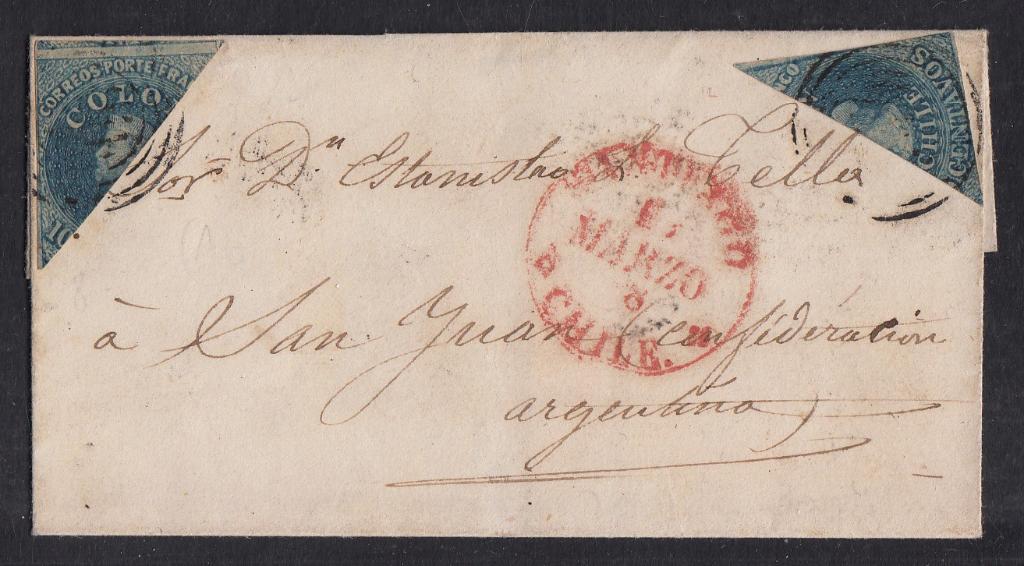 CORREOS PORTE FRA
COLO
10
GO
CHILE
CENTAVOS
Sor Dn Estanislao L. Tello
MARZO
CHILE.
à San Juan (confideración
argentina)